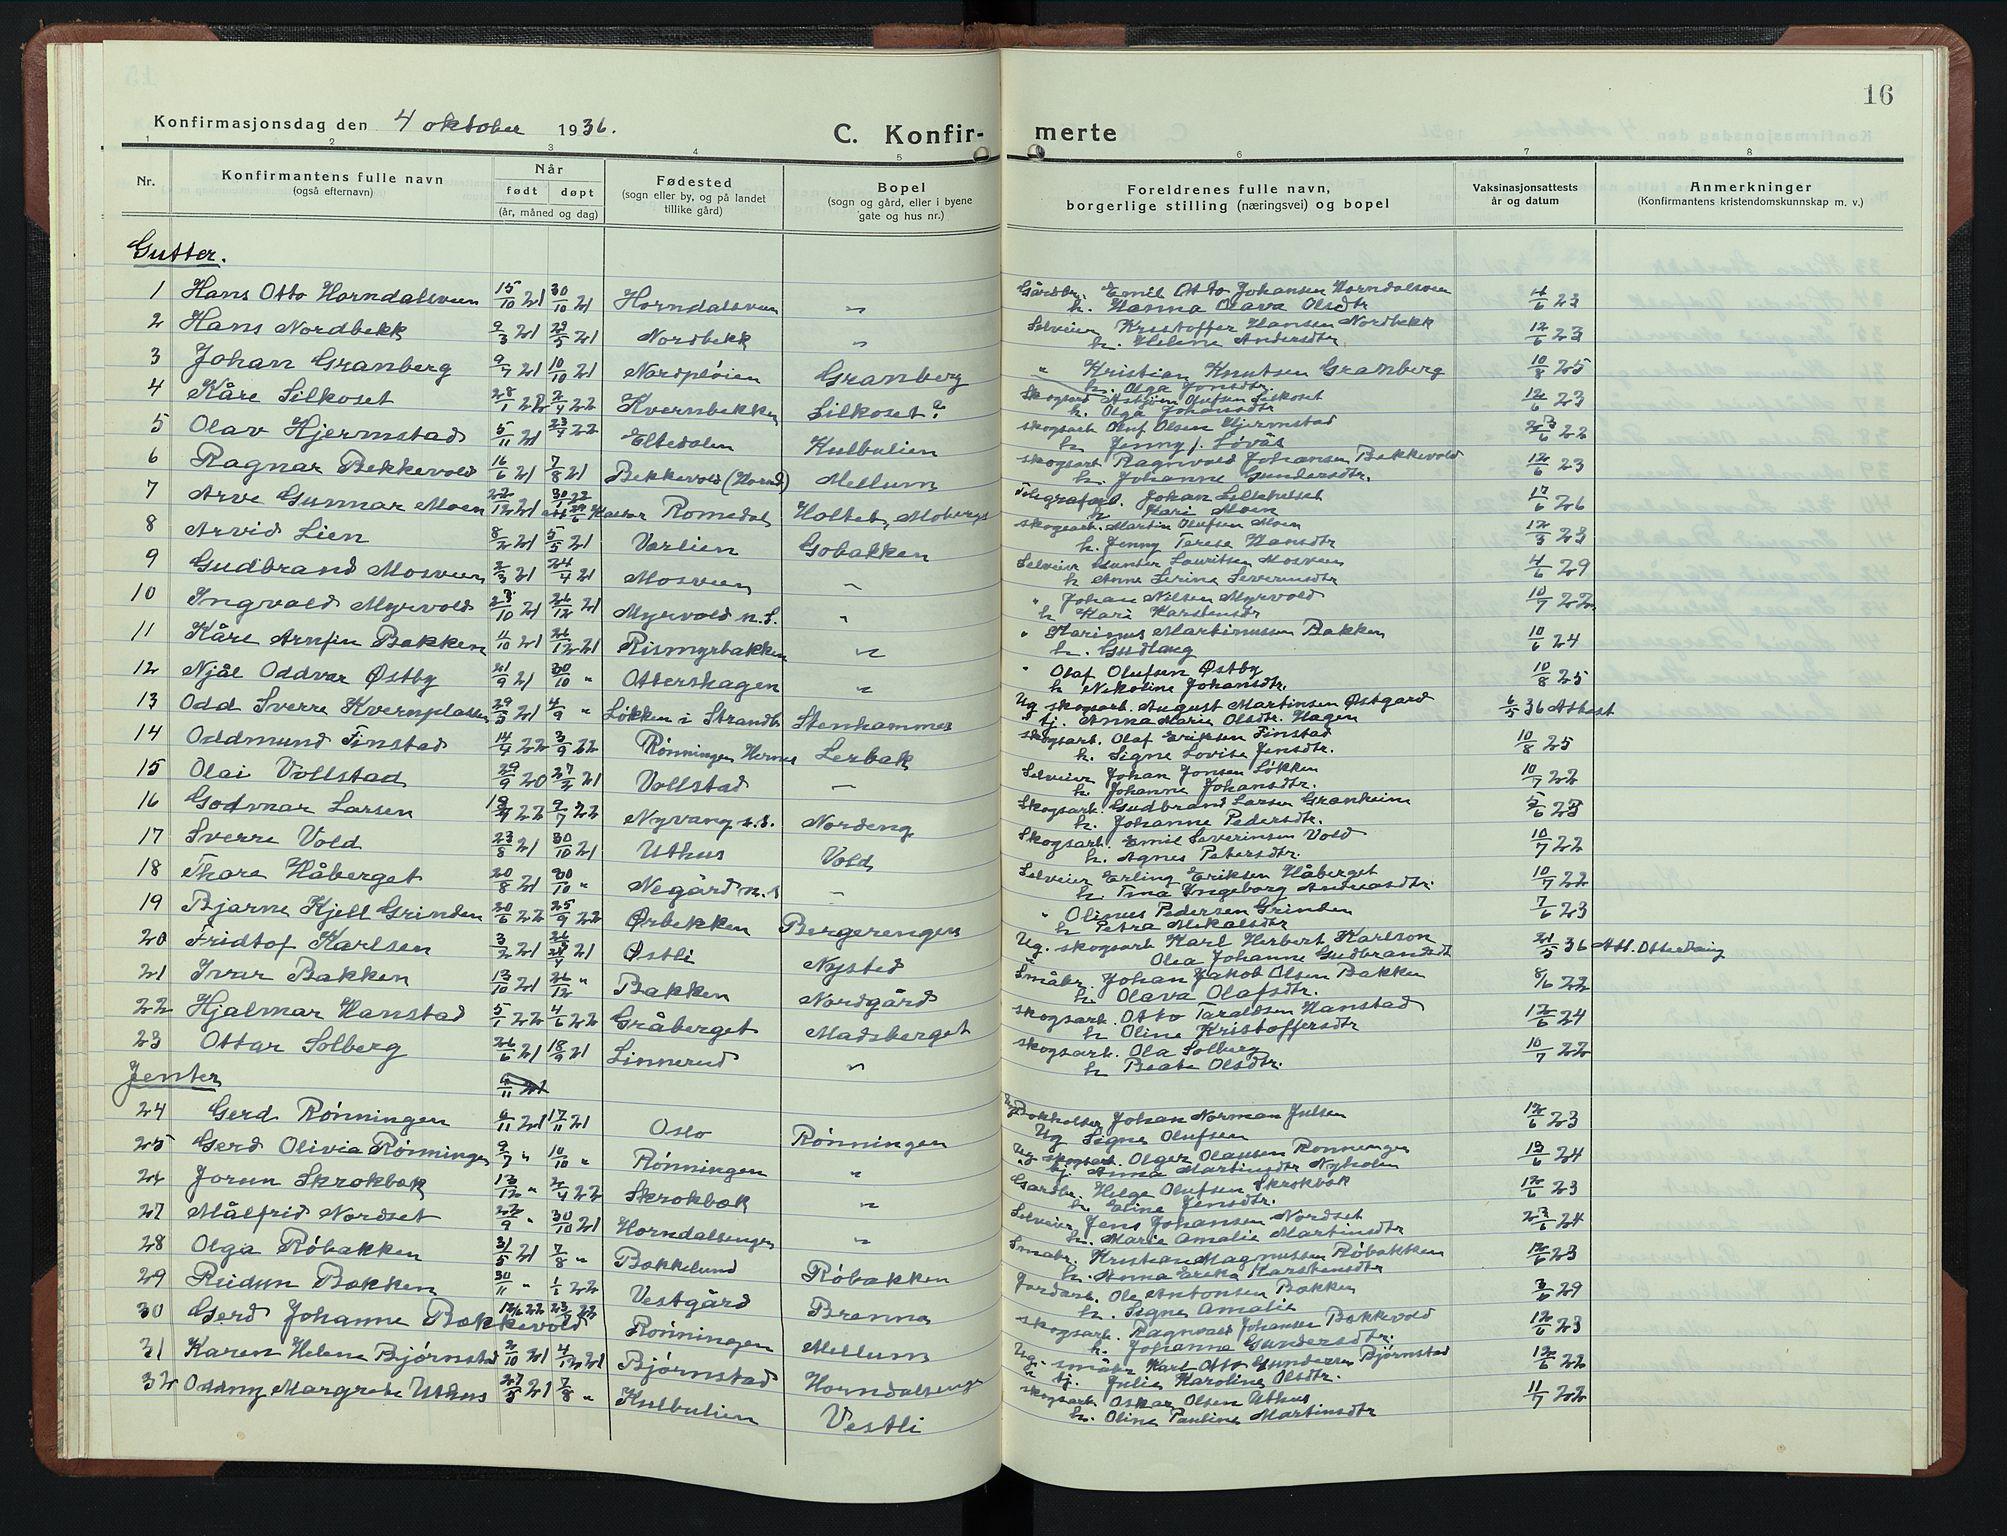 16
Konfirmasjonsdag den 4 oktober 1936.
C. Konfir-merte
1 2 3 4 5 6 7 8
Nr.
Konfirmantens fulle navn
(også efternavn)
Når
født døpt
(år, måned og dag)
Fødested
(sogn eller by, og på landet
tillike gård)
Bopel
(sogn og gård, eller i byene
gate og hus nr.)
Foreldrenes fulle navn,
borgerlige stilling (næringsvei) og bopel
Vaksinasjonsattests
år og datum
Anmerkninger
(Konfirmantens kristendomskunnskap m. v.)
Gutter.
1 Hans Otto Horndalsveen 15/10 21 30/10 21 Horndalsveen " Gårdbr. Emil Otto Johansen Horndalsveen 4/6 23
h. Hanna Olava Olsdtr
2 Hans Nordbekk 9/3 21 29/5 21 Nordbekk " Selveier Kristoffer Hansen Nordbekk 12/6 23
h. Helene Andersdtr
3 Johan Granberg 9/7 21 10/10 21 Nordpløien Granberg " Kristian Knutsen Granberg 10/8 25
h. Olga Jonsdtr.
4 Kåre Silkoset 28/1 22 2/4 22 Kvernbekken Silkoset? Skogsarb Asbjørn Olufsen Silkoset 12/6 23
h. Olga Johansdtr
5 Olav Hjermstad 5/11 21 23/4 22 Eltedalen Kulbulien skogsarb. Oluf Olsen Hjermstad 23/6 22
h Jenny f. Løvås
6 Ragnar Bekkevold 16/6 21 7/8 21 Bekkevold (Hornd) Mellum skogsarb Ragnvald Johansen Bekkevold 12/6 23
h. Johanne Gundersdtr.
7 Arve Gunnar Moen 22/12 21 30/1 22 Romedal Holtet, Moberget Telegrafarb. Johan Lillehelset 17/6 26
h Kari Moen
8 Arvid Lien 8/2 21 5/5 21 Varlien Gobakken skogsarb. Martin Olufsen Moen 12/3 23
h. Jenny Terese Hansdtr
9 Gudbrand Mosveen 2/3 21 24/4 21 Mosveen " Selveier Gunder Lauritsen Mosveen 4/6 29
h Anne Serine Severinsdtr
10 Ingvald Myrvold 23/10 21 26/12 21 Myrvold n.S. " " Johan Nilsen Myrvold 10/7 22
h Kari Karstensdtr
11 Kåre Arnfin Bakken 4/10 21 26/12 21 Rismyrbakken " " Karinus Martinussen Bakken 10/6 24
h. Gudlaug
12 Njål Oddvar Østby 21/9 21 30/10 " Otterskagen " " Olaf Olufsen Østby 10/8 25
h Nikoline Johansdtr.
13 Odd Sverre Kvernplassen 29/5 21 4/9 " Løkken i Strandb Stenhammer Ug skogsarb. August Martinsen Østgard 6/5 36 Attest
" tj. Anna Marie Olsdtr. Hagen
14 Oddmund Finstad 14/4 22 3/9 22 Rønningen Hernes Lerbak skogsarb. Olaf Eriksen Finstad 10/8 25
h. Signe Lovise Jensdtr.
15 Olai Vollstad 29/9 20 27/2 21 Vollstad " Selveier Johan Jonsen Løkken 10/7 22
h. Johanne Johansdtr.
16 Godvnar Larsen 18/4 22 9/7 22 Nyvang n.S. Nordeng Skogsarb. Gudbrand Larsen Granheim 5/6 23
h. Johanne Pedersdtr.
17 Sverre Vold 23/8 21 30/10 21 Uthus Vold Skogsarb. Emil Severinsen Vold 10/7 22
h. Agnes Petersdtr.
18 Thore Håberget 20/8 21 30/10 " Negård n.S " Selveier Erling Eriksen Håberget 10/7 22
h. Tina Ingeborg Andreasdtr.
19 Bjarne Kjell Grinden 20/6 22 25/9 22 Ørbekken Bergerengen " Olinus Pedersen Grinden 7/6 23
h Petra Mikalsdtr
20 Fridtof Karlsen 3/2 21 24/4 21 Østli Nysted Ug. skogsarb Karl Herbert Karlson 21/5 36 Att. Ottertraing
Olea Johanne Gudbrandsdt
21 Ivar Bakken 13/10 21 26/12 " Bakken Nordgård Småbr. Johan Jakob Olsen Bakken 8/6 22
h. Olava Olafsdtr.
22 Hjalmar Hanstad 5/1 22 4/6 22 Gråberget Madsberget skogsarb. Otto Taraldsen Hanstad 12/6 24
h Oline Kristoffersdtr
23 Ottar Solberg 26/6 21 18/9 21 Linnerud " skogsarb. Ola Solberg 10/7 22
h Beate Olsdtr.
Jenter
24 Gerd Rønningen 6/11 21 17/11 21 Oslo Rønningen Bokholder Johan Norman Julsen 12/6 23
Ug Signe Olufsen
25 Gerd Olivia Rønningen 9/7 " 10/10 " Rønningen " Ug skogsarb. Olger Olausen Rønningen 13/6 24
" tj. Anna Martinsdtr Nyholen
26 Jorun Skrokbæk 13/12 " 2/4 22 Skrokbæk " Gardbr. Helge Olufsen Skrokbæk 12/6 23
h Eline Jensdtr.
27 Målfrid Nordset 22/9 " 30/10 21 Horndalsengen " Selveier Jens Johansen Nordset 23/6 24
h. Marie Amalie Martinsdtr
28 Olga Røbakken 31/5 21 7/8 " Bakkelund Røbakken Småbr. Kristian Magnussen Røbakken 12/6 23
h. Anna Erika Karstensdtr
29 Reidun Bakken 30/11 " 1/1 22 Vestgård Brenna Jordarb. Ole Antonsen Bakken 3/6 29
h. Signe Amalie
30 Gerd Johanne Bækkevold 12/6 22 23/7 22 Rønningen Mellum skogsarb. Ragnvald Johansen Bækkevold 12/6 23
h. Johanne Gundersdtr.
31 Karen Helene Bjørnstad 2/10 21 4/12 21 Bjørnstad Horndalsengen Ug. småbr. Karl Otto Gundersen Bjørnstad 12/6 22
tj. Julie Karoline Olsdtr.
32 Oddny Margrete Uthus 27/5 21 7/8 " Kulbulien Vestli skogsarb Oskar Olsen Uthus 11/7 22
h. Oline Pauline Martinsdtr